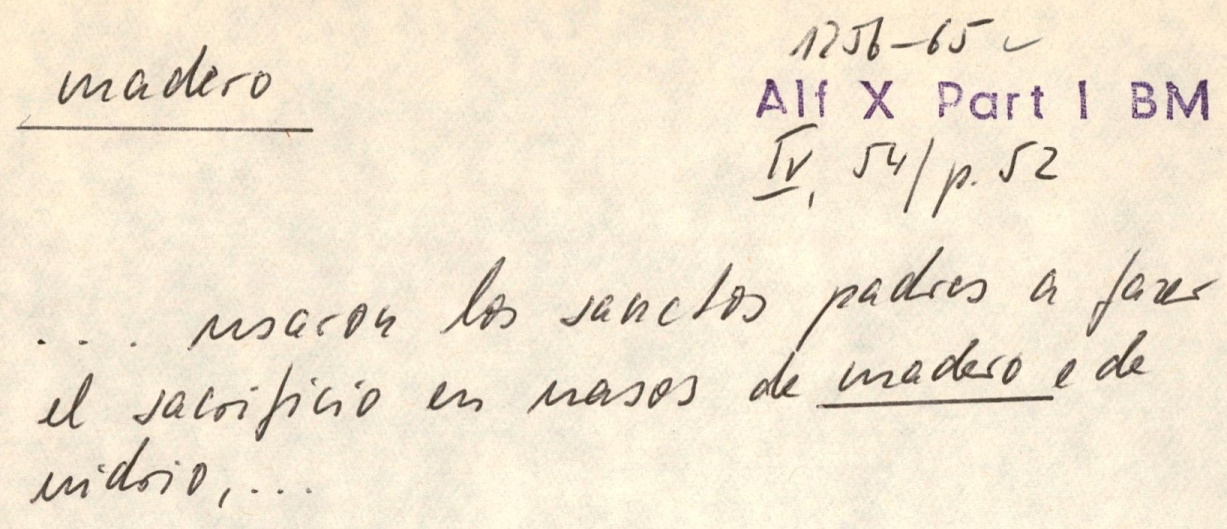 madero
1256-65
Alf X Part I BM
IV, 54/p. 52
.... usaron los sanctos padres a fazer
el sacrificio en uasos de madero e de
uidrio,...